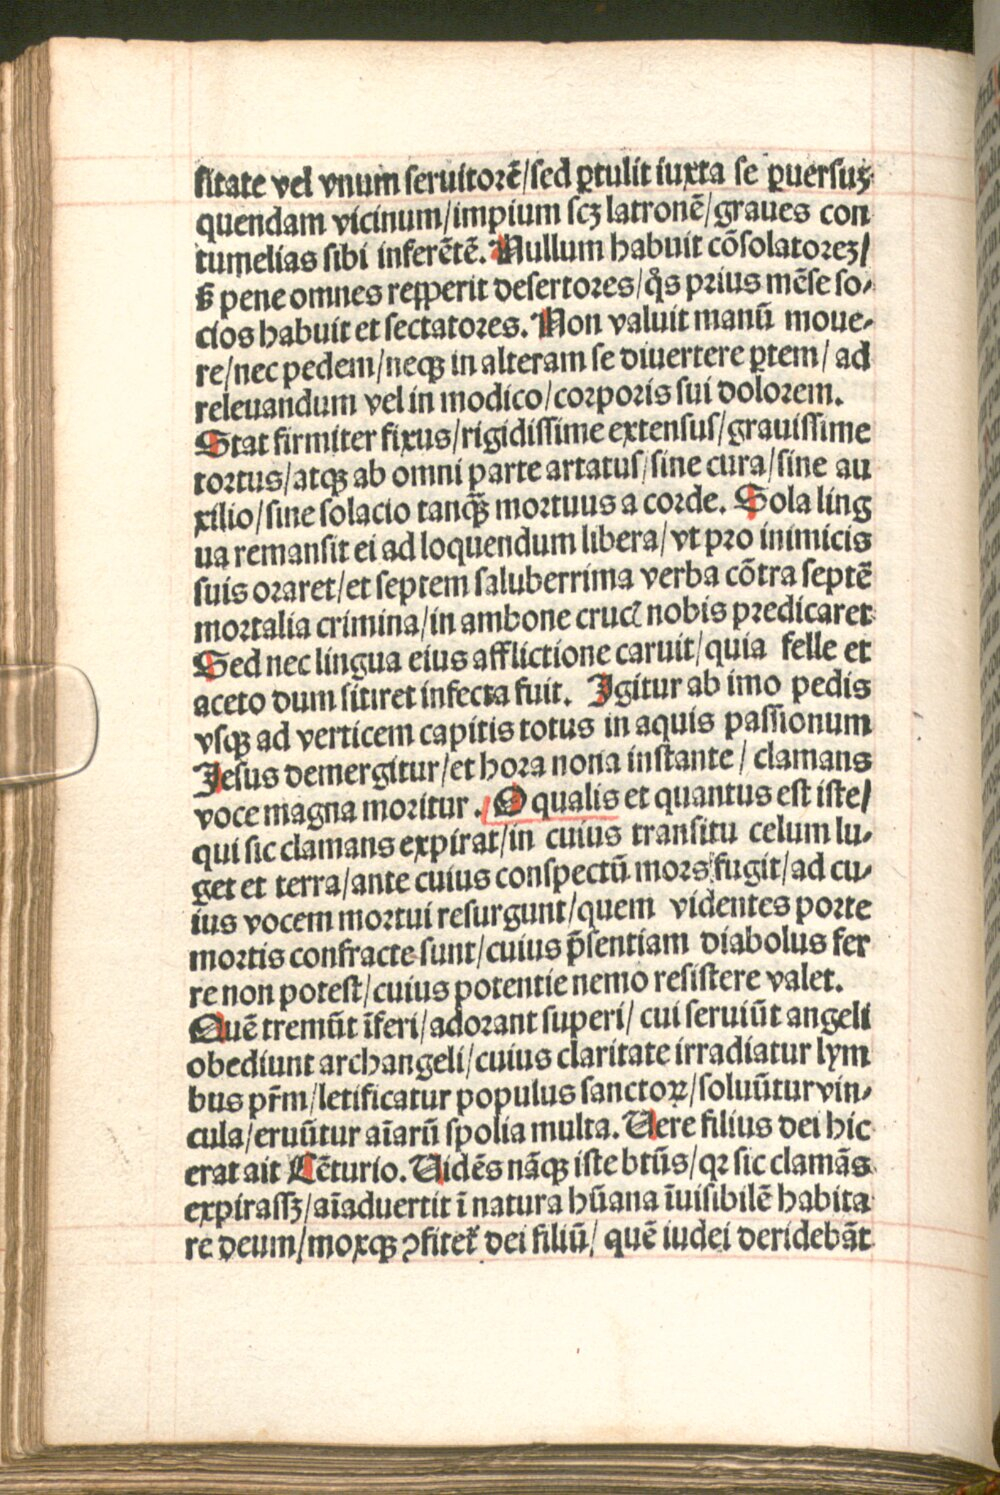 ſitate vel vnum ſeruitorē/ſed ꝑtulit iuxta ſe ꝑuerſuꝫ
quendam vicinum/impium ſcꝫ latronē/graues con
tumelias ſibi inferētē. Nullum habuit cōſolatoreꝫ/
ẜ pene omnes reꝑperit deſertores/q̊s prius mēſe ſo-
cios habuit et ſectatores. Non valuit manū moue-
re/nec pedem/neqꝫ in alteram ſe diuertere ꝑtem/ ad
releuandum vel in modico/corporis ſui dolorem.
Stat firmiter fixus/rigidiſſime extenſus/grauiſſime
tortus/atqꝫ ab omni parte artatus/ſine cura/ſine au
xilio/ſine ſolacio tanqꝫ̄ mortuus a corde. Sola ling
ua remanſit ei ad loquendum libera/vt pro inimicis
ſuis oraret/et ſeptem ſaluberrima verba cōtra ſeptē
mortalia crimina/in ambone crucꝭ nobis predicaret
Sed nec lingua eius afflictione caruit/quia felle et
aceto dum ſitiret infecta fuit. Igitur ab imo pedis
vſqꝫ ad verticem capitis totus in aquis paſſionum
Jeſus demergitur/et hora nona inſtante/ clamans
voce magna moritur. O qualis et quantus eſt iſte/
qui ſic clamans expirat/in cuius tranſitu celum lu-
get et terra/ante cuius conſpectū mors fugit/ad cu-
ius vocem mortui reſurgunt/quem videntes porte
mortis confracte ſunt/cuius p̄ſentiam diabolus fer
re non poteſt/cuius potentie nemo reſiſtere valet.
Quē tremūt īferi/adorant ſuperi/ cui ſeruiūt angeli
obediunt archangeli/cuius claritate irradiatur lym
bus pr̄m/letificatur populus ſanctoꝝ/ſoluūtur vin-
cula/eruūtur aīarū ſpolia multa. Uere filius dei hic
erat ait Cēturio. Uidēs nāqꝫ iſte btūs/qꝛ ſic clamās
expiraſſꝫ/aīaduertit ī natura hūana īuiſibilē habita
re deum/moxqꝫ ꝯfitet᷑ dei filiū/ quē iudei deridebāt